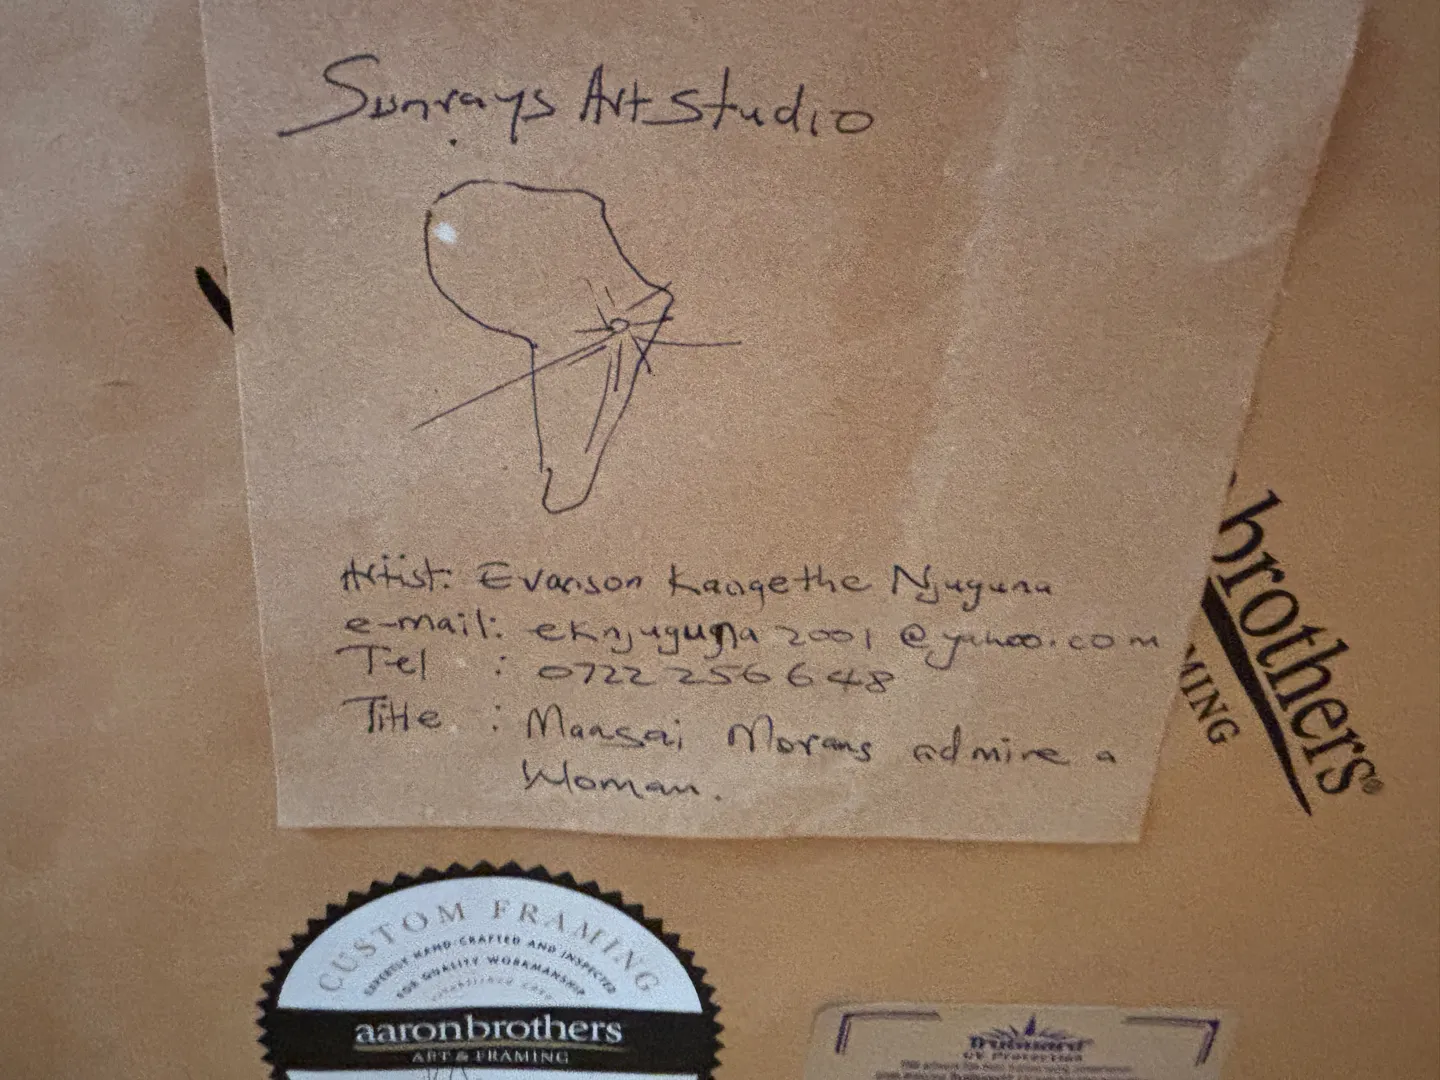 Sunrays Art Studio
Artist: Evanson Kangethe Njuguna
e-mail: eknjuguna2001@yahoo.com
Tel : 0722 256 648
Title : Maasai Morans admire a
Woman.
brothers®
MING
CUSTOM FRAMING
EXPERTLY HAND-CRAFTED AND INSPECTED
FOR QUALITY WORKMANSHIP
aaronbrothers
ART & FRAMING
UV Protection